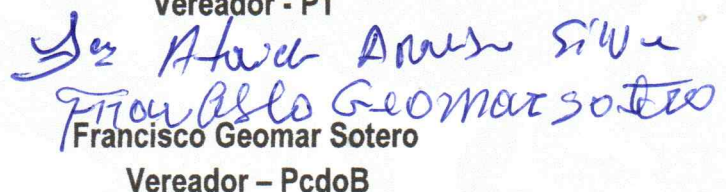 Vereador - PT
Silva
Francisco Geomar Sotero
Francisco Geomar Sotero
Vereador – PcdoB